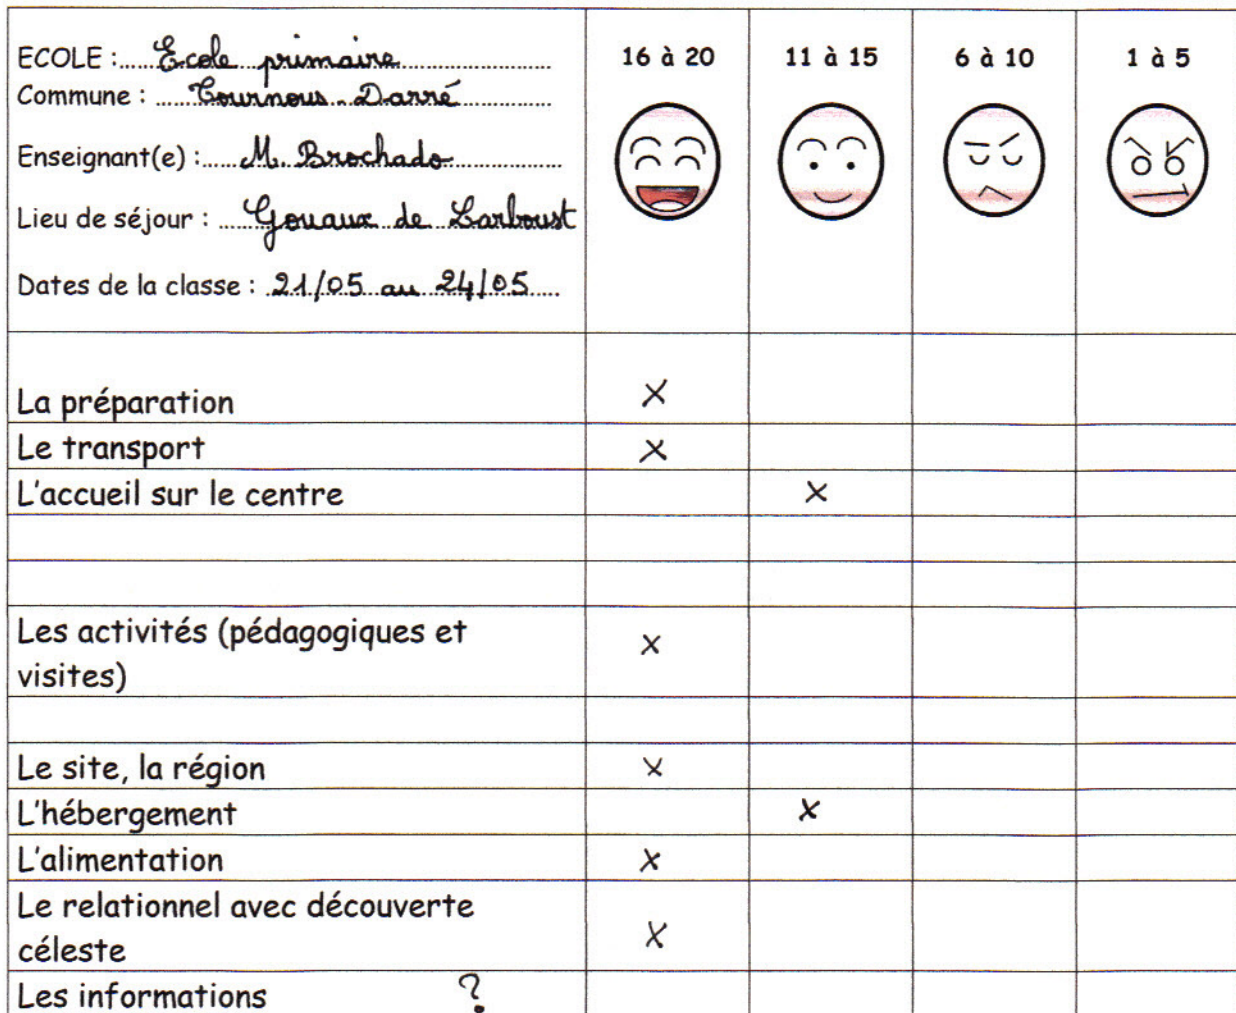 ECOLE : Ecole primaire
Commune : Tournous-Darré
Enseignant(e) : M. Brochado
Lieu de séjour : Gouaux de Larboust
Dates de la classe : 21/05 au 24/05
16 à 20 11 à 15 6 à 10 1 à 5
La préparation X
Le transport X
L'accueil sur le centre X
Les activités (pédagogiques et
visites) X
Le site, la région X
L'hébergement X
L'alimentation X
Le relationnel avec découverte
céleste X
Les informations ?